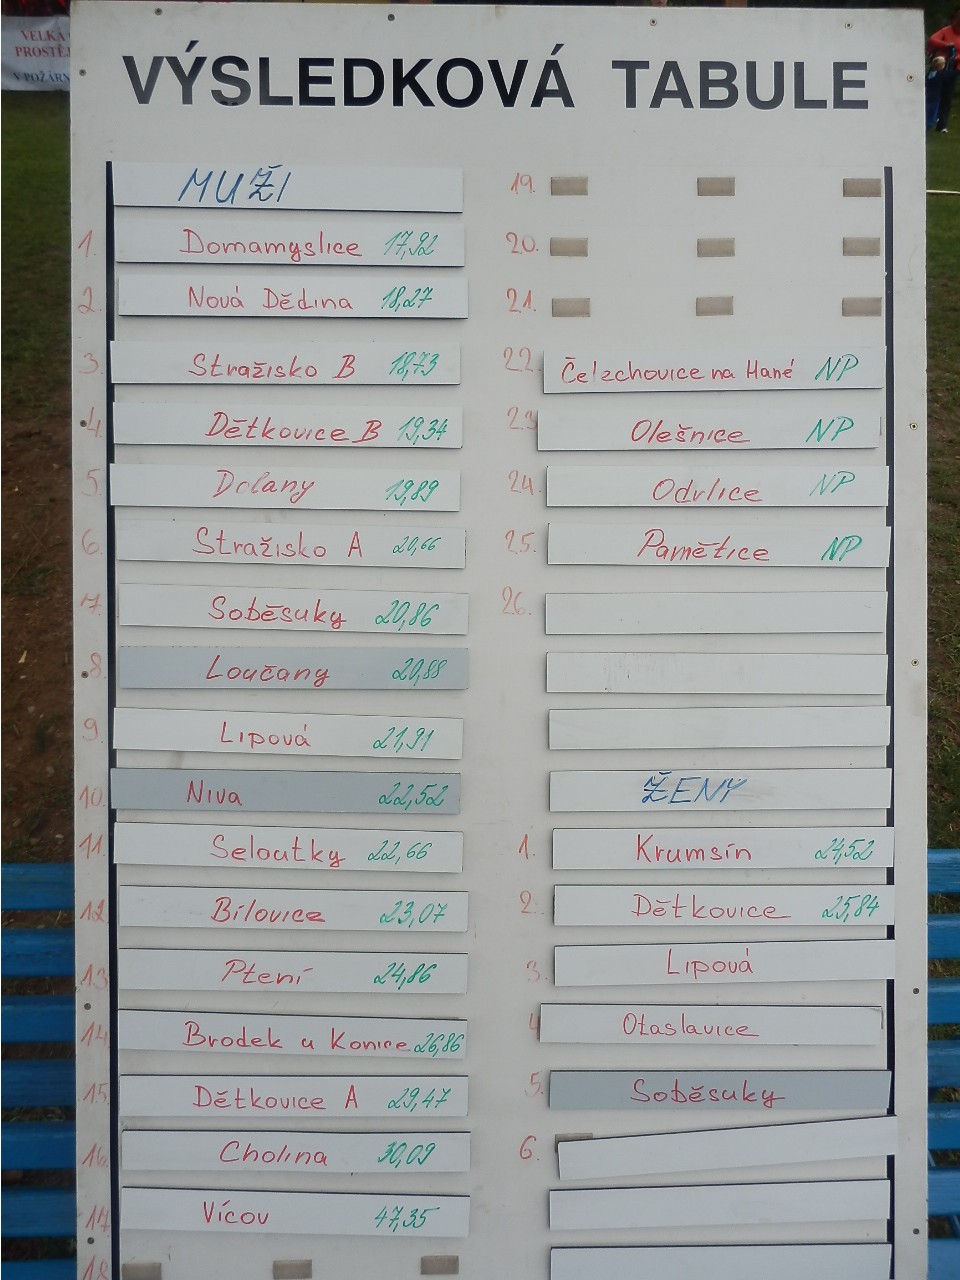 VELKÁ
PROSTĚJ
V POŽÁRN
VÝSLEDKOVÁ TABULE
MUŽI
1. Domamyslice 17,92
2. Nová Dědina 18,27
3. Stražisko B 18,73
4. Dětkovice B 19,34
5. Dolany 19,89
6. Stražisko A 20,66
7. Soběsuky 20,86
8. Loučany 20,88
9. Lipová 21,91
10. Niva 22,52
11. Seloutky 22,66
12 Bílovice 23,07
13 Ptení 24,86
14 Brodek u Konice 26,86
15 Dětkovice A 29,47
16. Cholina 30,09
17 Vícov 47,35
18
19.
20.
21.
22. Čelzchovice na Hané NP
23 Olešnice NP
24. Odrlice NP
25. Pamětice NP
26.
ŽENY
1. Krumsín 24,52
2. Dětkovice 25,84
3. Lipová
4 Otaslavice
5. Soběsuky
6.